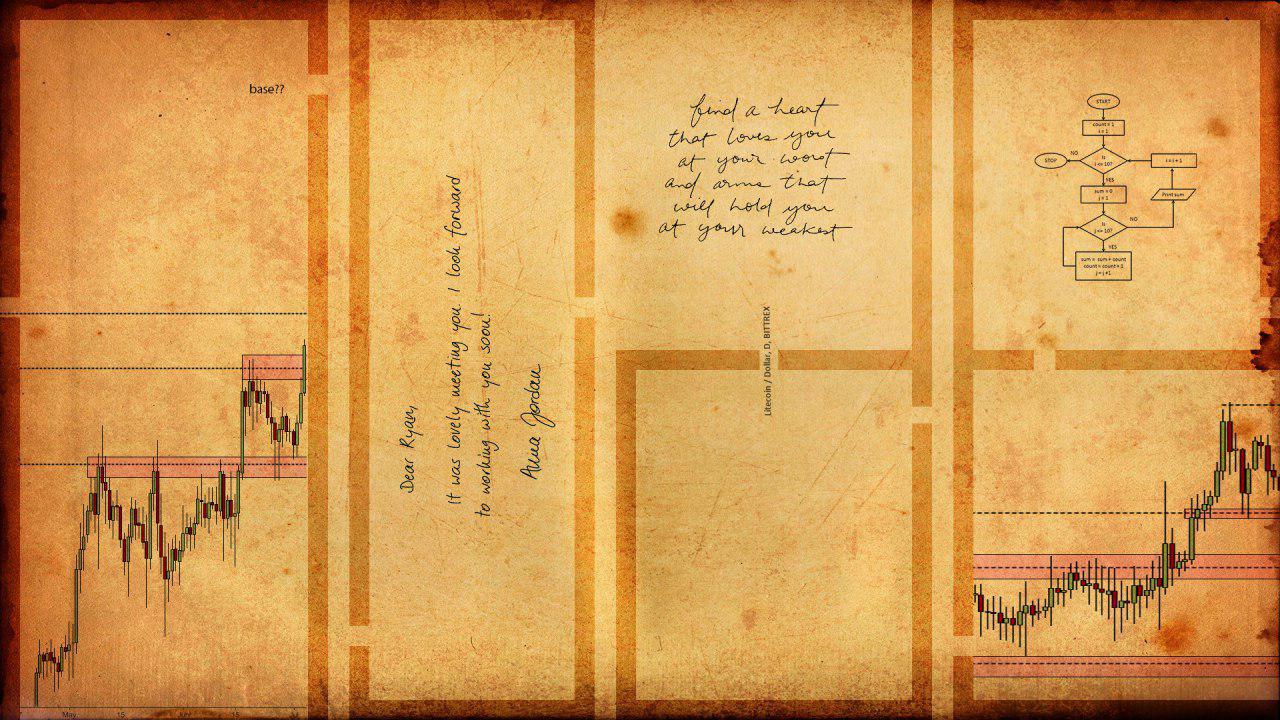 base??
May
15
Jun
15
Dear Ryan,
It was lovely meeting you. I look forward
to working with you soon!
Anna Jordan
find a heart
that loves you
at your worst
and arms that
will hold you
at your weakest
Litecoin / Dollar, D, BITTREX
START
count = 1
i = 1
Is
i <= 10?
NO
STOP
YES
i = i + 1
sum = 0
j = 1
Print sum
Is
j <= 10?
NO
YES
sum = sum + count
count = count + 1
j = j +1